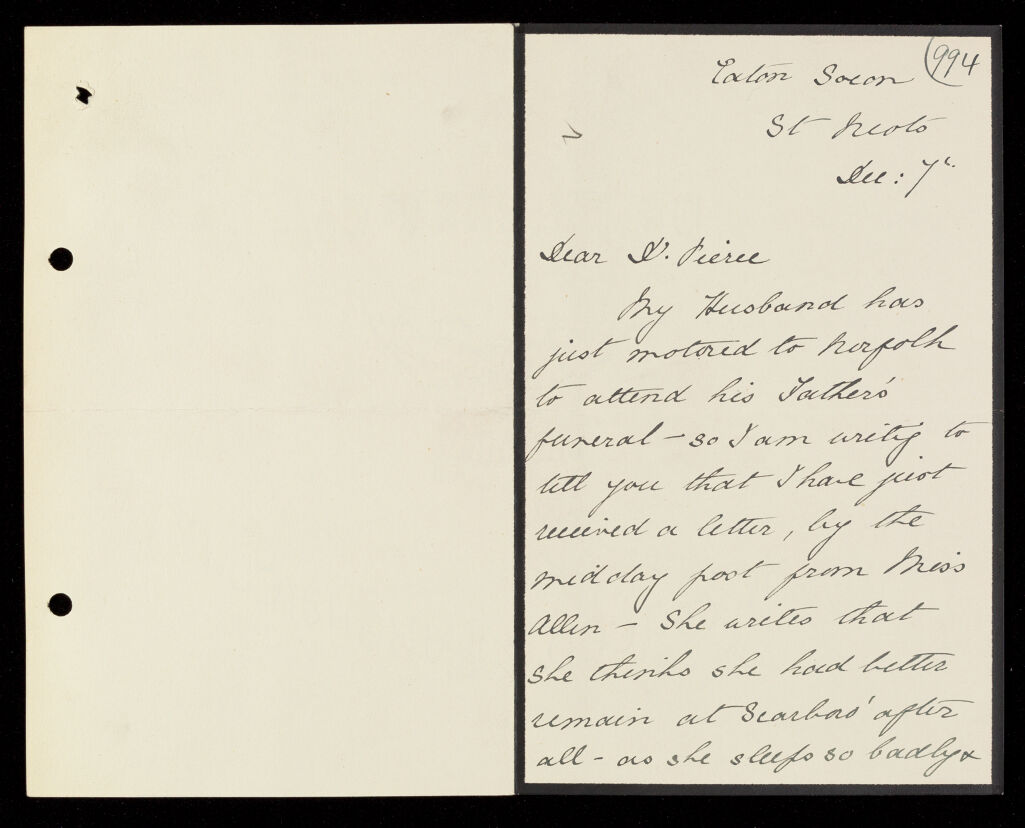 994
Eaton Socon
St Neots
Dec: 7th
Dear Dr. Pierce
My Husband has
just motored to Norfolk
to attend his Father's
funeral - so I am writig to
tell you that I have just
received a letter, by the
midday post from Miss
Allen - She writes that
she thinks she had better
remain at Scarboro' after
all - as she sleeps so badly &